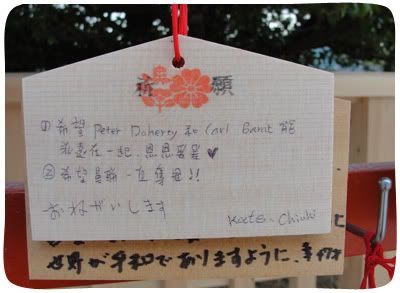 祈願
① 希望 Peter Doherty 和 Carl Barat 能
永遠在一起,恩恩愛愛♥
② 希望曼聯一直奪冠!!
おねがいします
Kate. Chiuki
世界が平和でありますように、